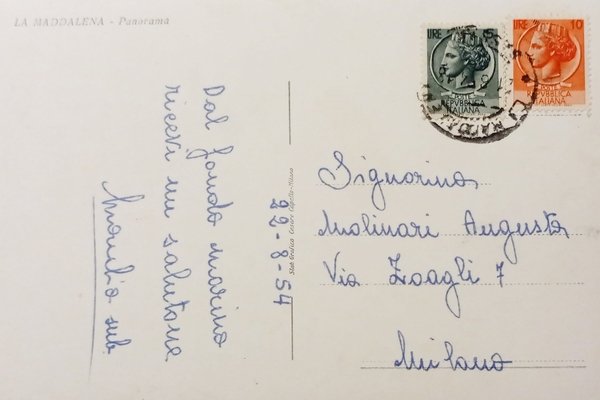 LA MADDALENA - Panorama
Dal fondo marino
ricevi un salutone
22-8-54
Stab. Grafico Cesare Capello - Milano
LIRE 5
POSTE
REPVBBLICA
ITALIANA
LIRE 10
POSTE
REPVBBLICA
ITALIANA
Signorina
Molinari Augusta
Via Zoagli 7
Milano